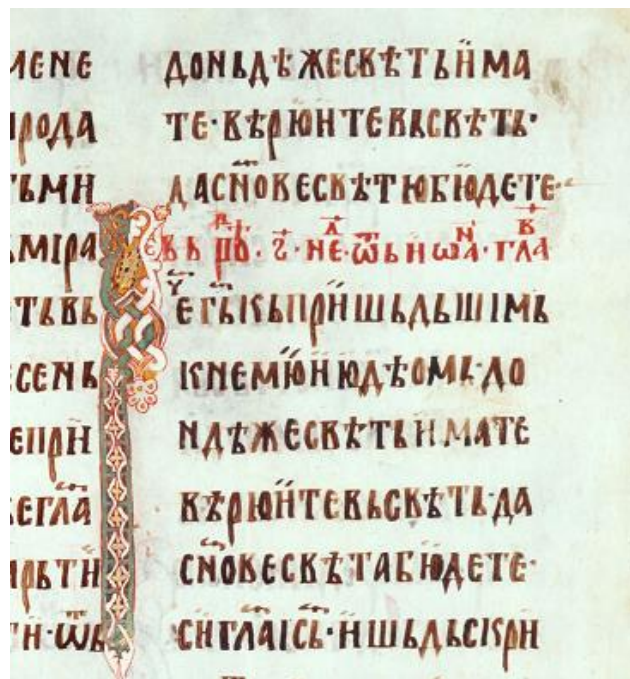 МЕНЕ
РОДА
ТЬМИ
МІРА
ТЬВЬ
СЕНЬ
ЕПРИ
ЕГЛА
РЬТИ
ТИ·ѾЬ
ДОНЬДѢЖЕСВѢТЬИМА
ТЕ·ВѢРЮИТЕВЬСВѢТЬ·
ДАСНОВЕСВѢТЮБЮДЕТЕ·
ВЬ · НЕ·ѾЬИѠА·ГЛА
ЕГЬІСЬПРИШЬДЬШІМЬ
КНЕМЮИЮДѢОМЬ·ДО
НДѢЖЕСВѢТЬИМАТЕ
ВѢРЮИТЕВЬСВѢТЬ·ДА
СНОВЕСВѢТАБЮДЕТЕ·
СИГЛАІСЬ·ИШЬДЬСКРИ